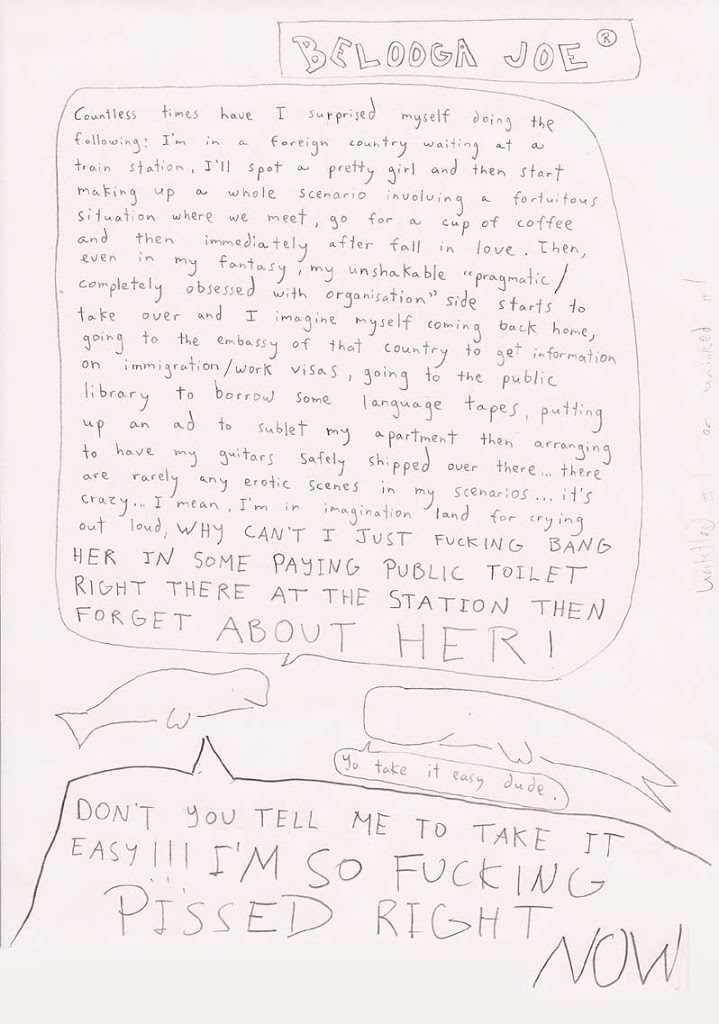 BELOOGA JOE ®
Countless times have I surprised myself doing the
following: I'm in a foreign country waiting at a
train station, I'll spot a pretty girl and then start
making up a whole scenario involving a fortuitous
situation where we meet, go for a cup of coffee
and then immediately after fall in love. Then,
even in my fantasy, my unshakable "pragmatic/
completely obsessed with organisation" side starts to
take over and I imagine myself coming back home,
going to the embassy of that country to get information
on immigration/work visas, going to the public
library to borrow some language tapes, putting
up an ad to sublet my apartment then arranging
to have my guitars safely shipped over there... there
are rarely any erotic scenes in my scenarios... it's
crazy... I mean, I'm in imagination land for crying
out loud, WHY CAN'T I JUST FUCKING BANG
HER IN SOME PAYING PUBLIC TOILET
RIGHT THERE AT THE STATION THEN
FORGET ABOUT HER!
Yo take it easy dude.
DON'T YOU TELL ME TO TAKE IT
EASY!!! I'M SO FUCKING
PISSED RIGHT
NOW